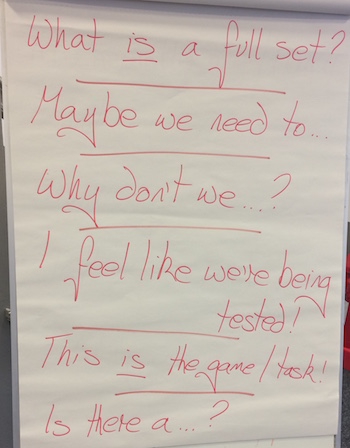 What is a full set?
Maybe we need to...
Why don't we...?
I feel like we're being
tested!
This is the game/task!
Is there a...?